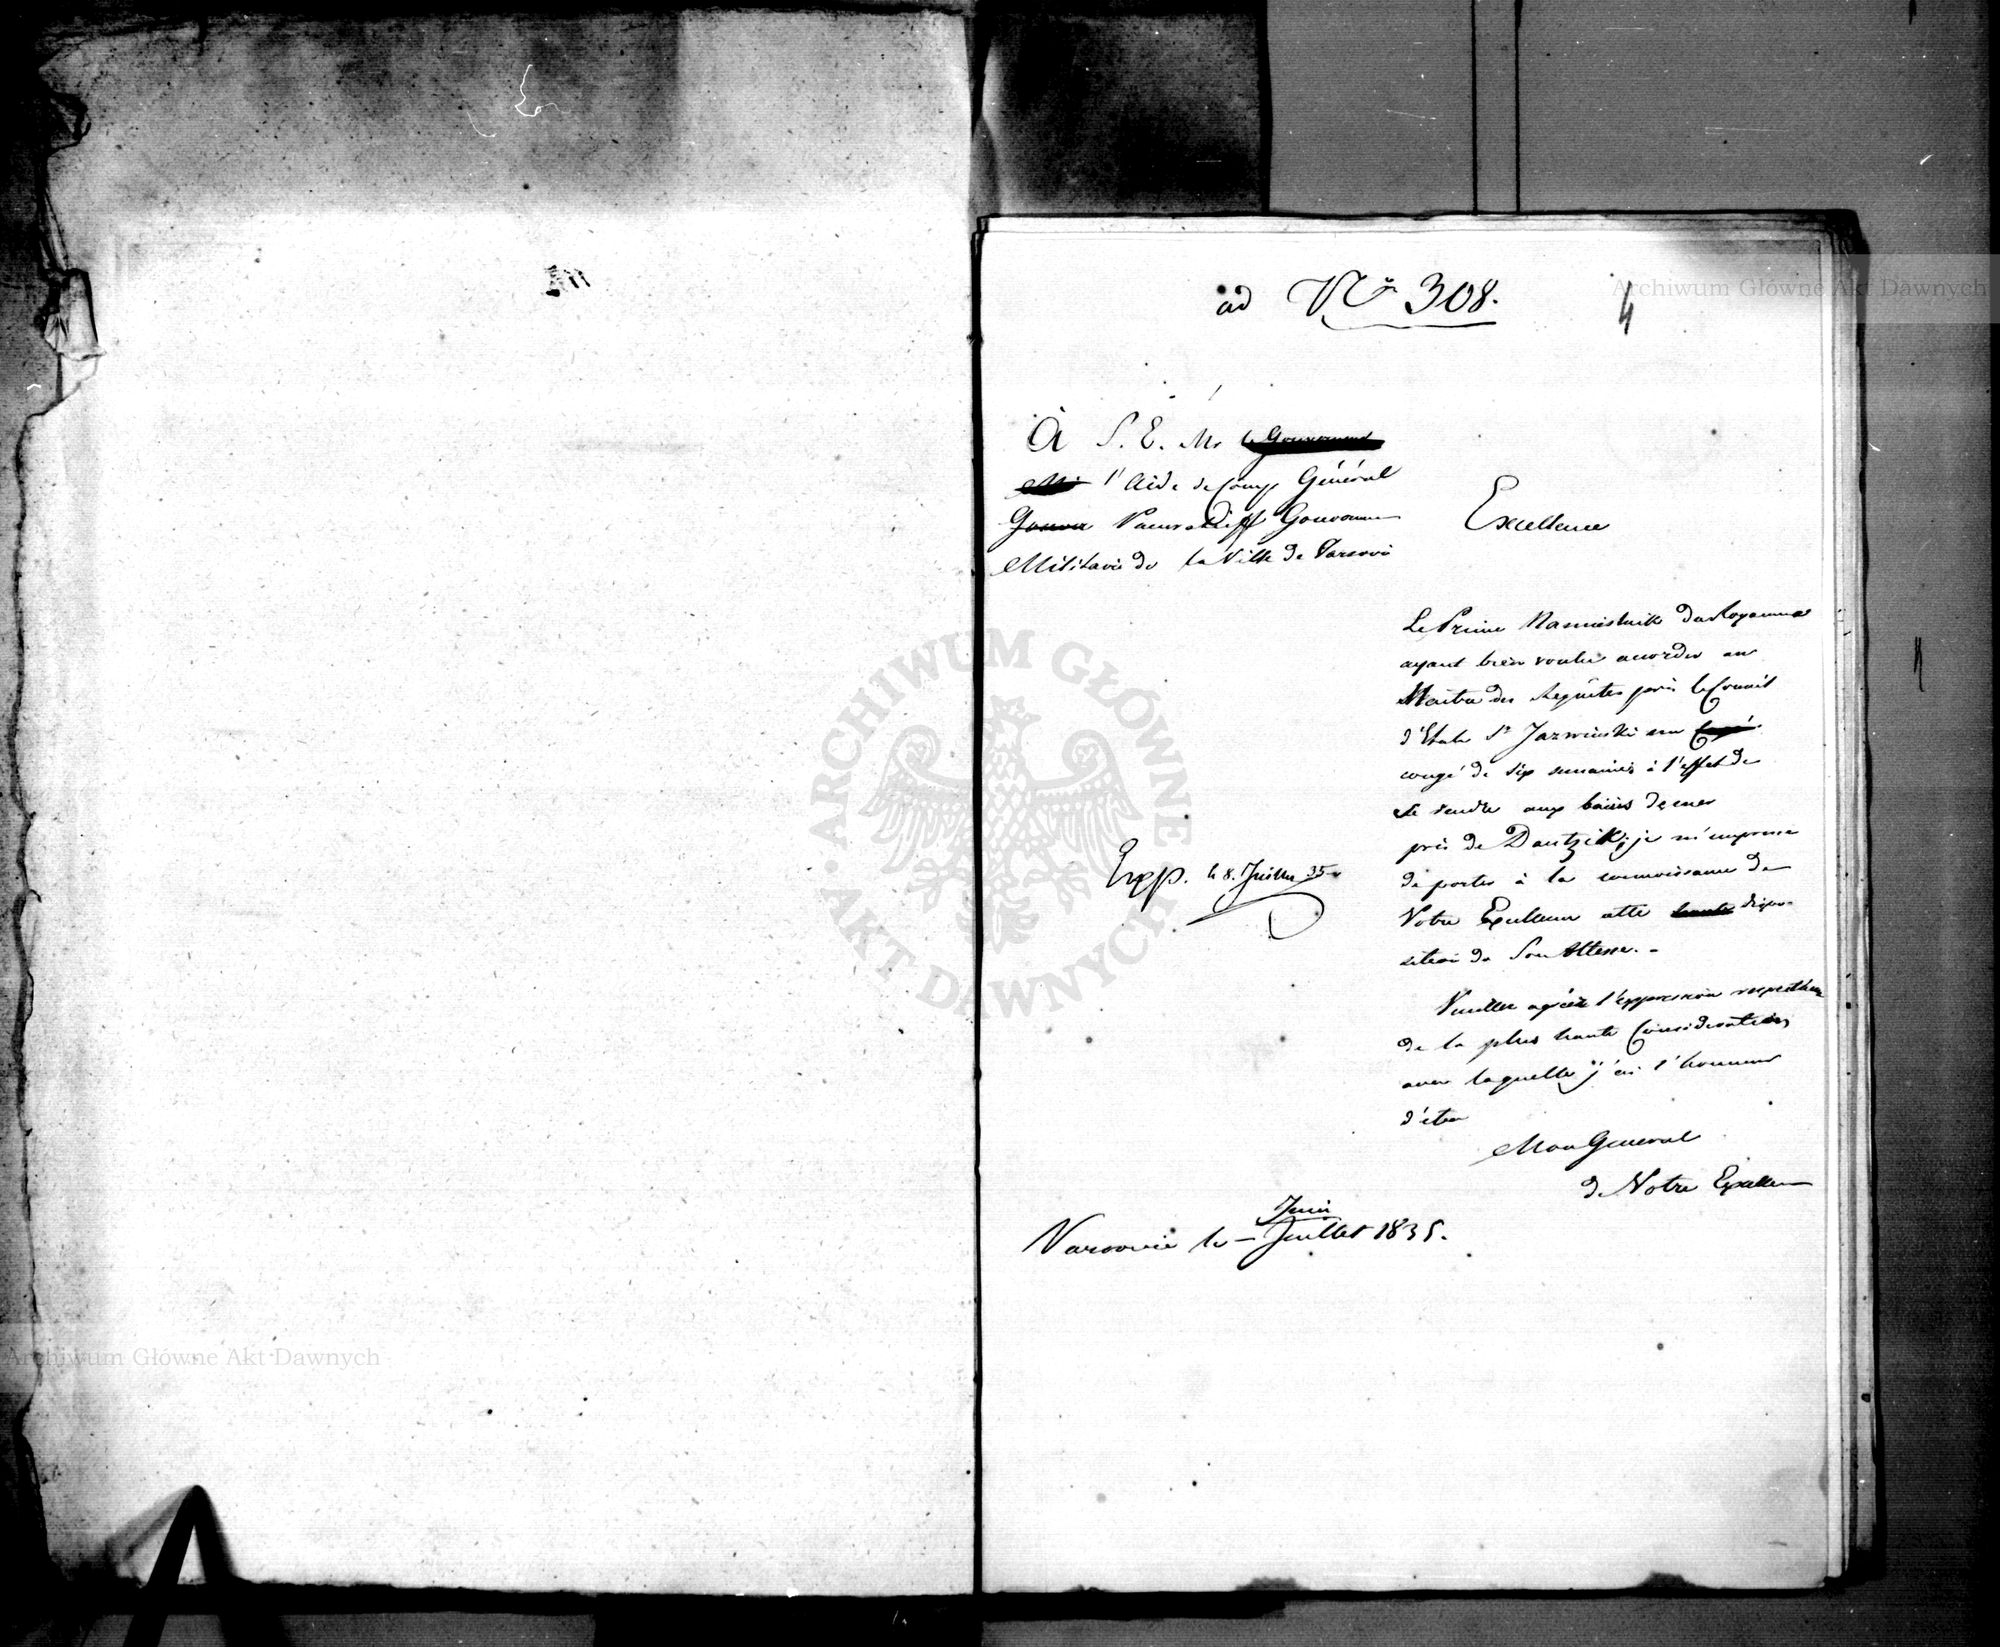 ad No 308.
4
À S. E. Mr le Gouverneur
l'Aide de Camp Général
Gouver Gouverneur
Militaire de la Ville de Varsovie
Excellence
Le Prince Namiestnik du Royaume
ayant bien voulu accorder au
Maitre des Requêtes près le Conseil
d'Etat Sr Jazwinski un Congé
congé de six semaines à l'effet de
se rendre aux bains de mer
près de Dantzik, je m'empresse
de porter à la connoissance de
Votre Excellence cette haute dispo-
sition de Son Altesse. -
Exp. le 8. Juillet 35
Veuillez agréer l'expression respectueuse
de la plus haute Considération
avec laquelle j'ai l'honneur
d'être
Mon Général
de Votre Excellence
Juin
Varsovie le - Juillet 1835.
ARCHIWUM GŁÓWNE AKT DAWNYCH
Archiwum Główne Akt Dawnych
Archiwum Główne Akt Dawnych